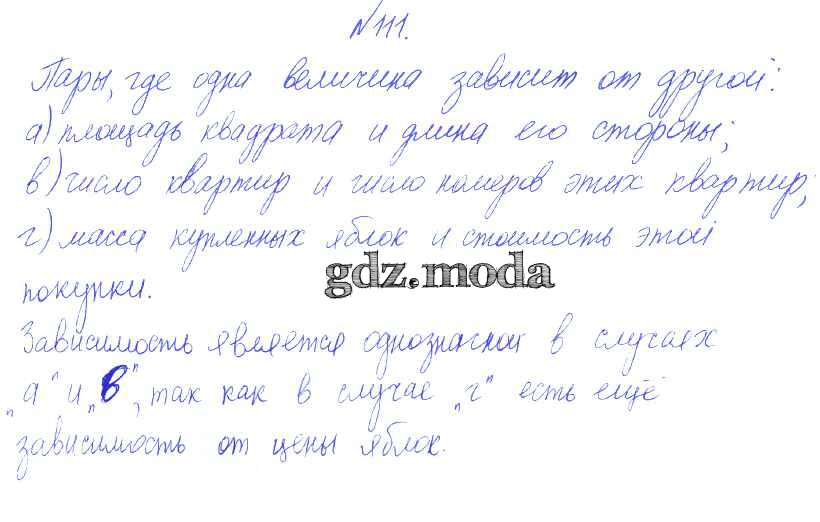 №111.
Пары, где одна величина зависит от другой:
а) площадь квадрата и длина его стороны;
в) число квартир и число номеров этих квартир;
г) масса купленных яблок и стоимость этой
gdz.moda
покупки.
Зависимость является однозначной в случаях
„а" и „в", так как в случае „г" есть ещё
зависимость от цены яблок.